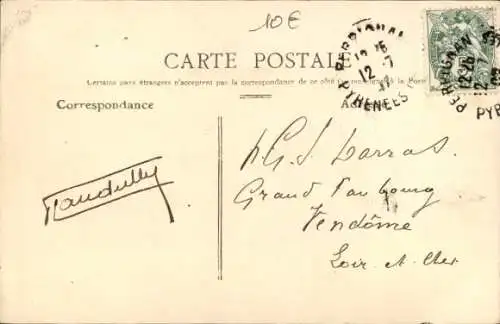 10€
CARTE POSTALE
Certains pays étrangers n'acceptent pas la correspondance de ce côté (se renseigner à la Poste)
Correspondance
PERPIGNAN
12
PYRENEES
PERPIGNAN
12
PYR
Larras
Grand Faubourg
Vendôme
Loir et Cher